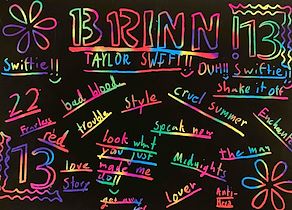 BRINN
13
TAYLOR SWIFT!!
Swiftie!!
DUH!! Swiftie!!
Shake it off
22
bad blood
style
cruel summer
Fearless
trouble
Enchanted
red
speak now
look what
you just
made me
do!!
13
Love
Story
Midnights
The man
get away
Lover
Anti-
Hero